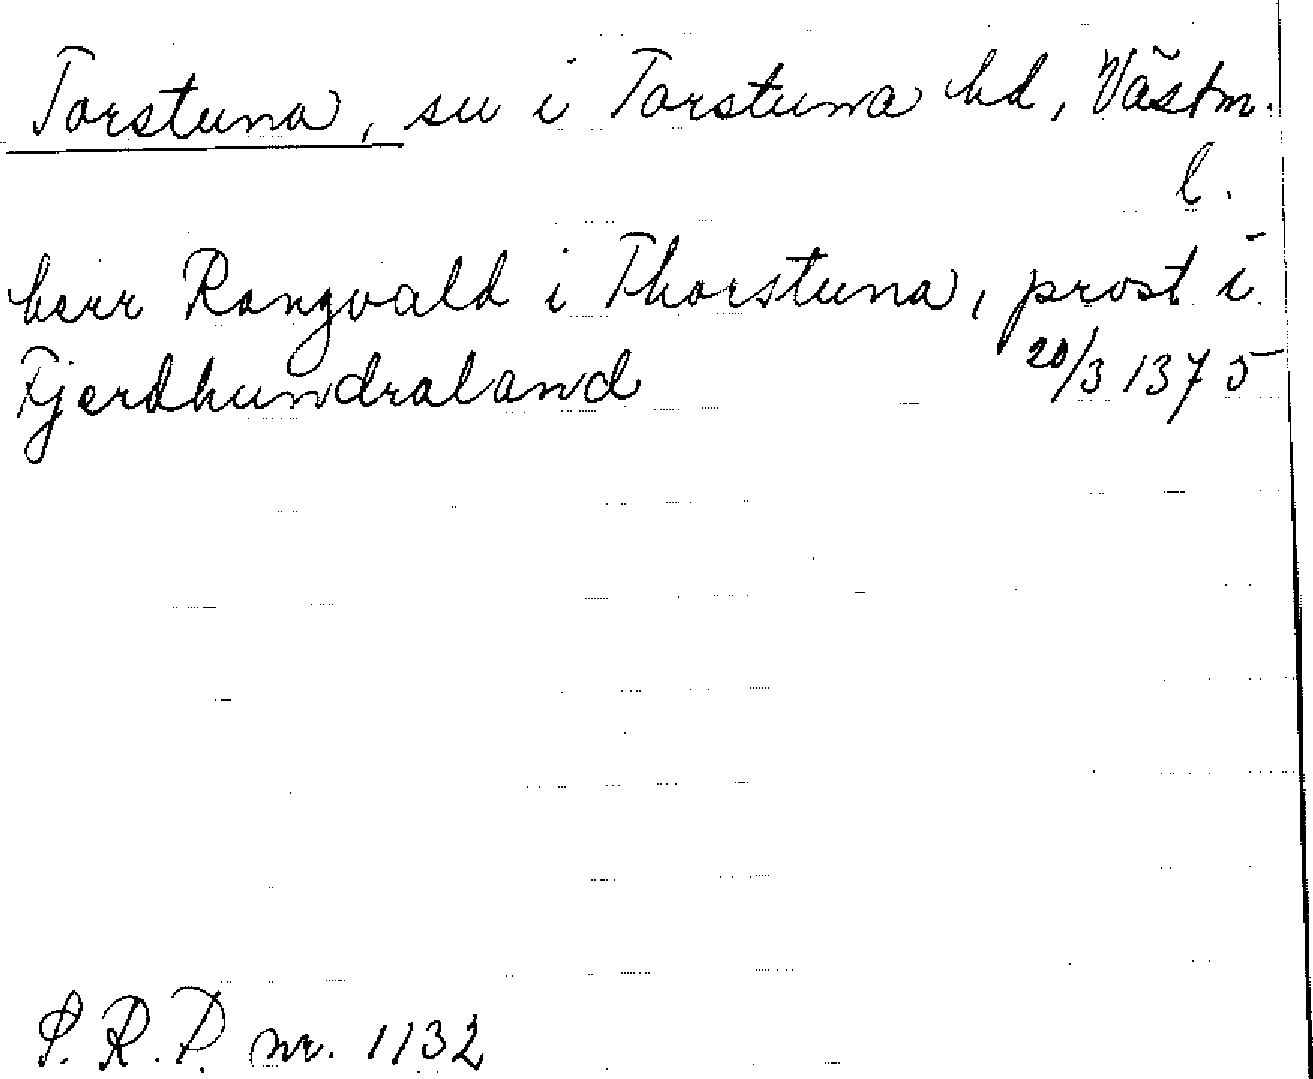 Torstuna, sn i Torstuna hd, Västm.
l.
herr Rangvald i Thorstuna, prost i
Fjerdhundraland 20/3 1375
S.R.P. nr. 1132